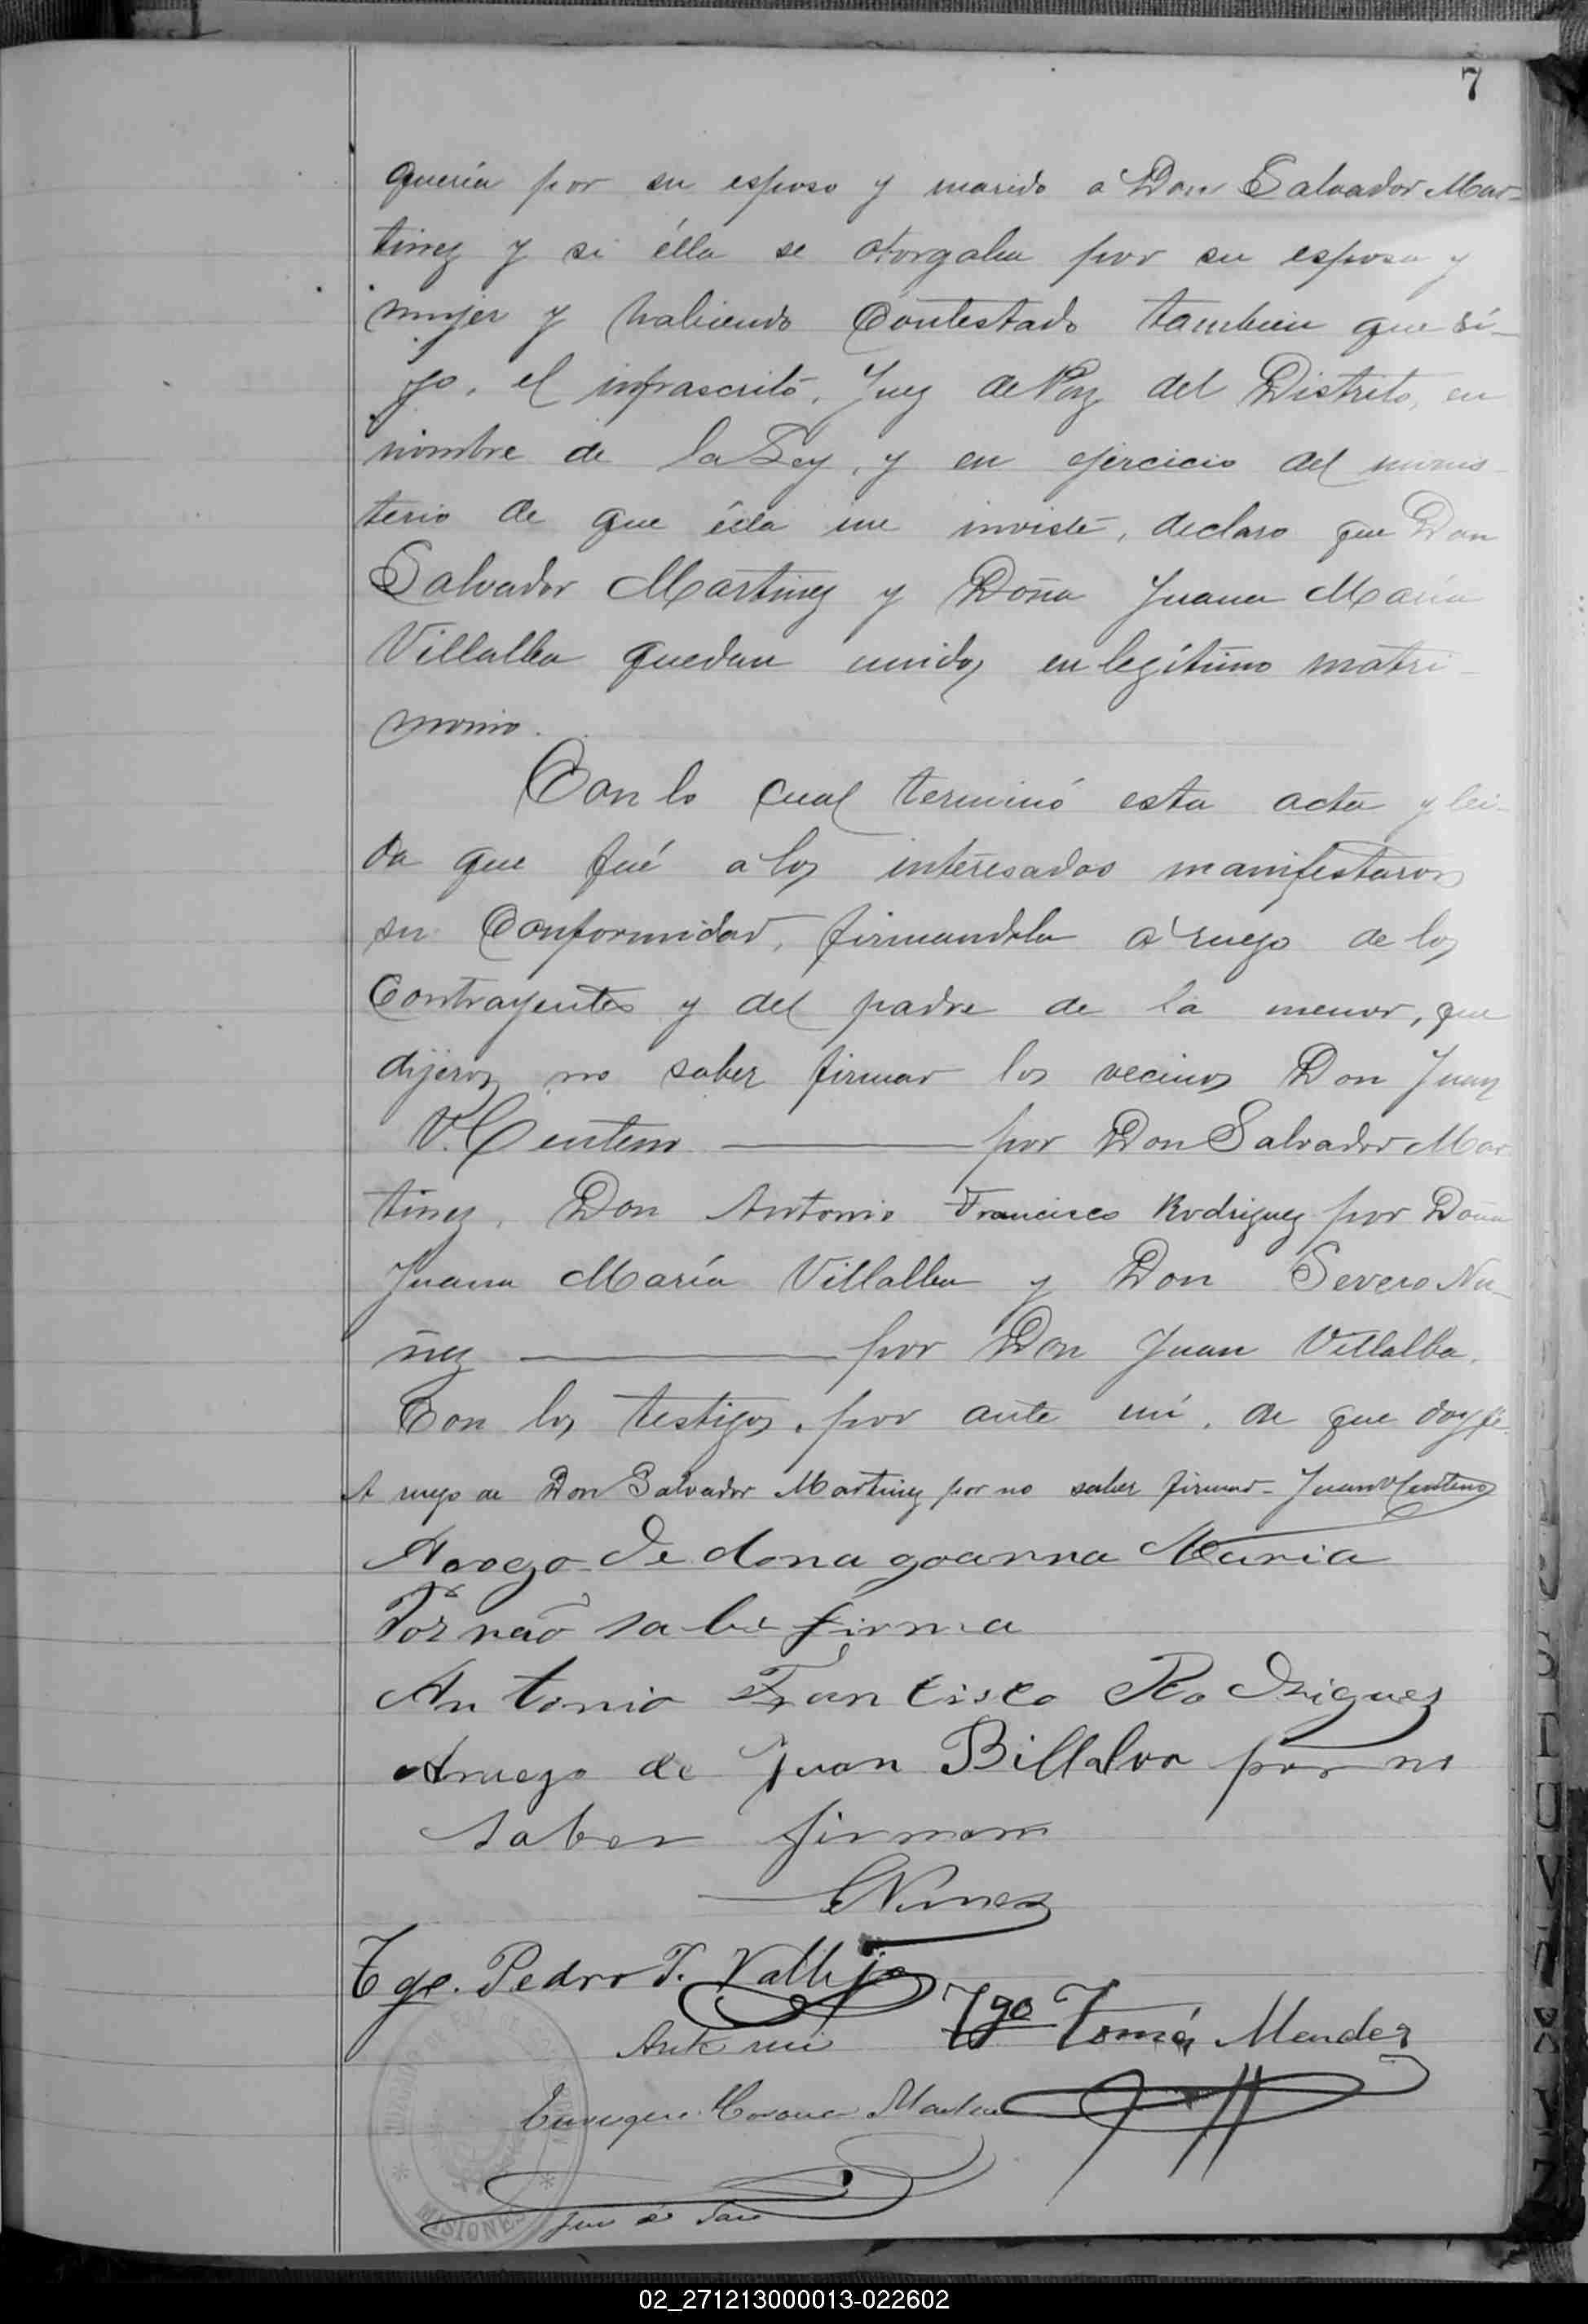 7
quería por su esposo y marido a Don Salvador Mar-
tinez y si élla se otorgaba por su esposa y
mujer y habiendo Contestado tambien que sí-
yo, el infrascrito, Juez de Paz del Distrito, en
nombre de la Ley, y en ejercicio del minis-
terio de que élla me inviste, declaro que Don
Salvador Martinez y Doña Juana María
Villalba quedan unidos en legítimo matri-
monio.
Con lo cual terminó esta acta y lei-
da que fué a los interesados manifestaron
su Conformidad, firmandola a ruego de los
Contrayentes y del padre de la menor, que
dijeron no saber firmar los vecinos Don Juan
V. Centeno por Don Salvador Mar-
tinez, Don Antonio Francisco Rodriguez por Doña
Juana María Villalba y Don Severo Nu-
ñez por Don Juan Villalba.
Con los testigos, por ante mí, de que doy fé.
A ruego de Don Salvador Martinez por no saber firmar - Juan V Centeno
A rogo de dona goanna Maria
Por não sabe firma
Antonio Francisco Rodriguez
Aruego de Juan Billalva por no
saber firmar
SNunez
Tgo. Pedro T. Vallejo
Tgo Tomás Mendez
Ante mi
Juez de Paz
MISIONES
02_271213000013-022602